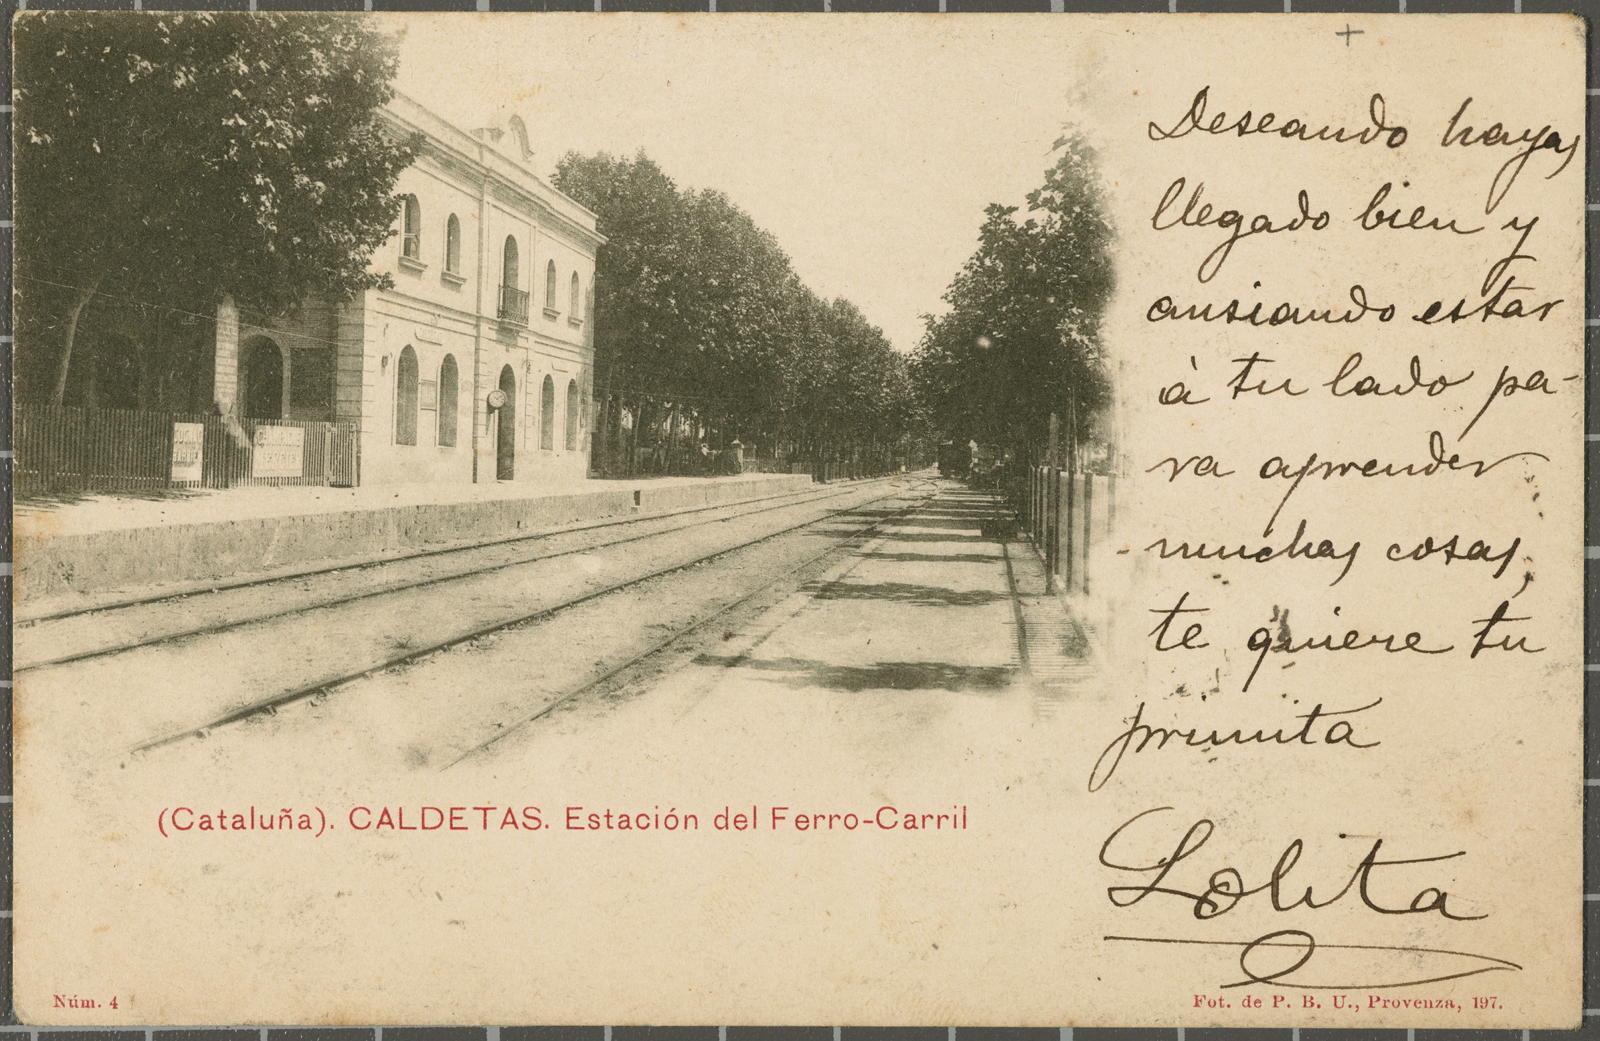 Deseando hayas
llegado bien y
ansiando estar
à tu lado pa-
ra aprender
muchas cosas,
te quiere tu
primita
Lolita
(Cataluña). CALDETAS. Estación del Ferro-Carril
Núm. 4
Fot. de P. B. U., Provenza, 197.